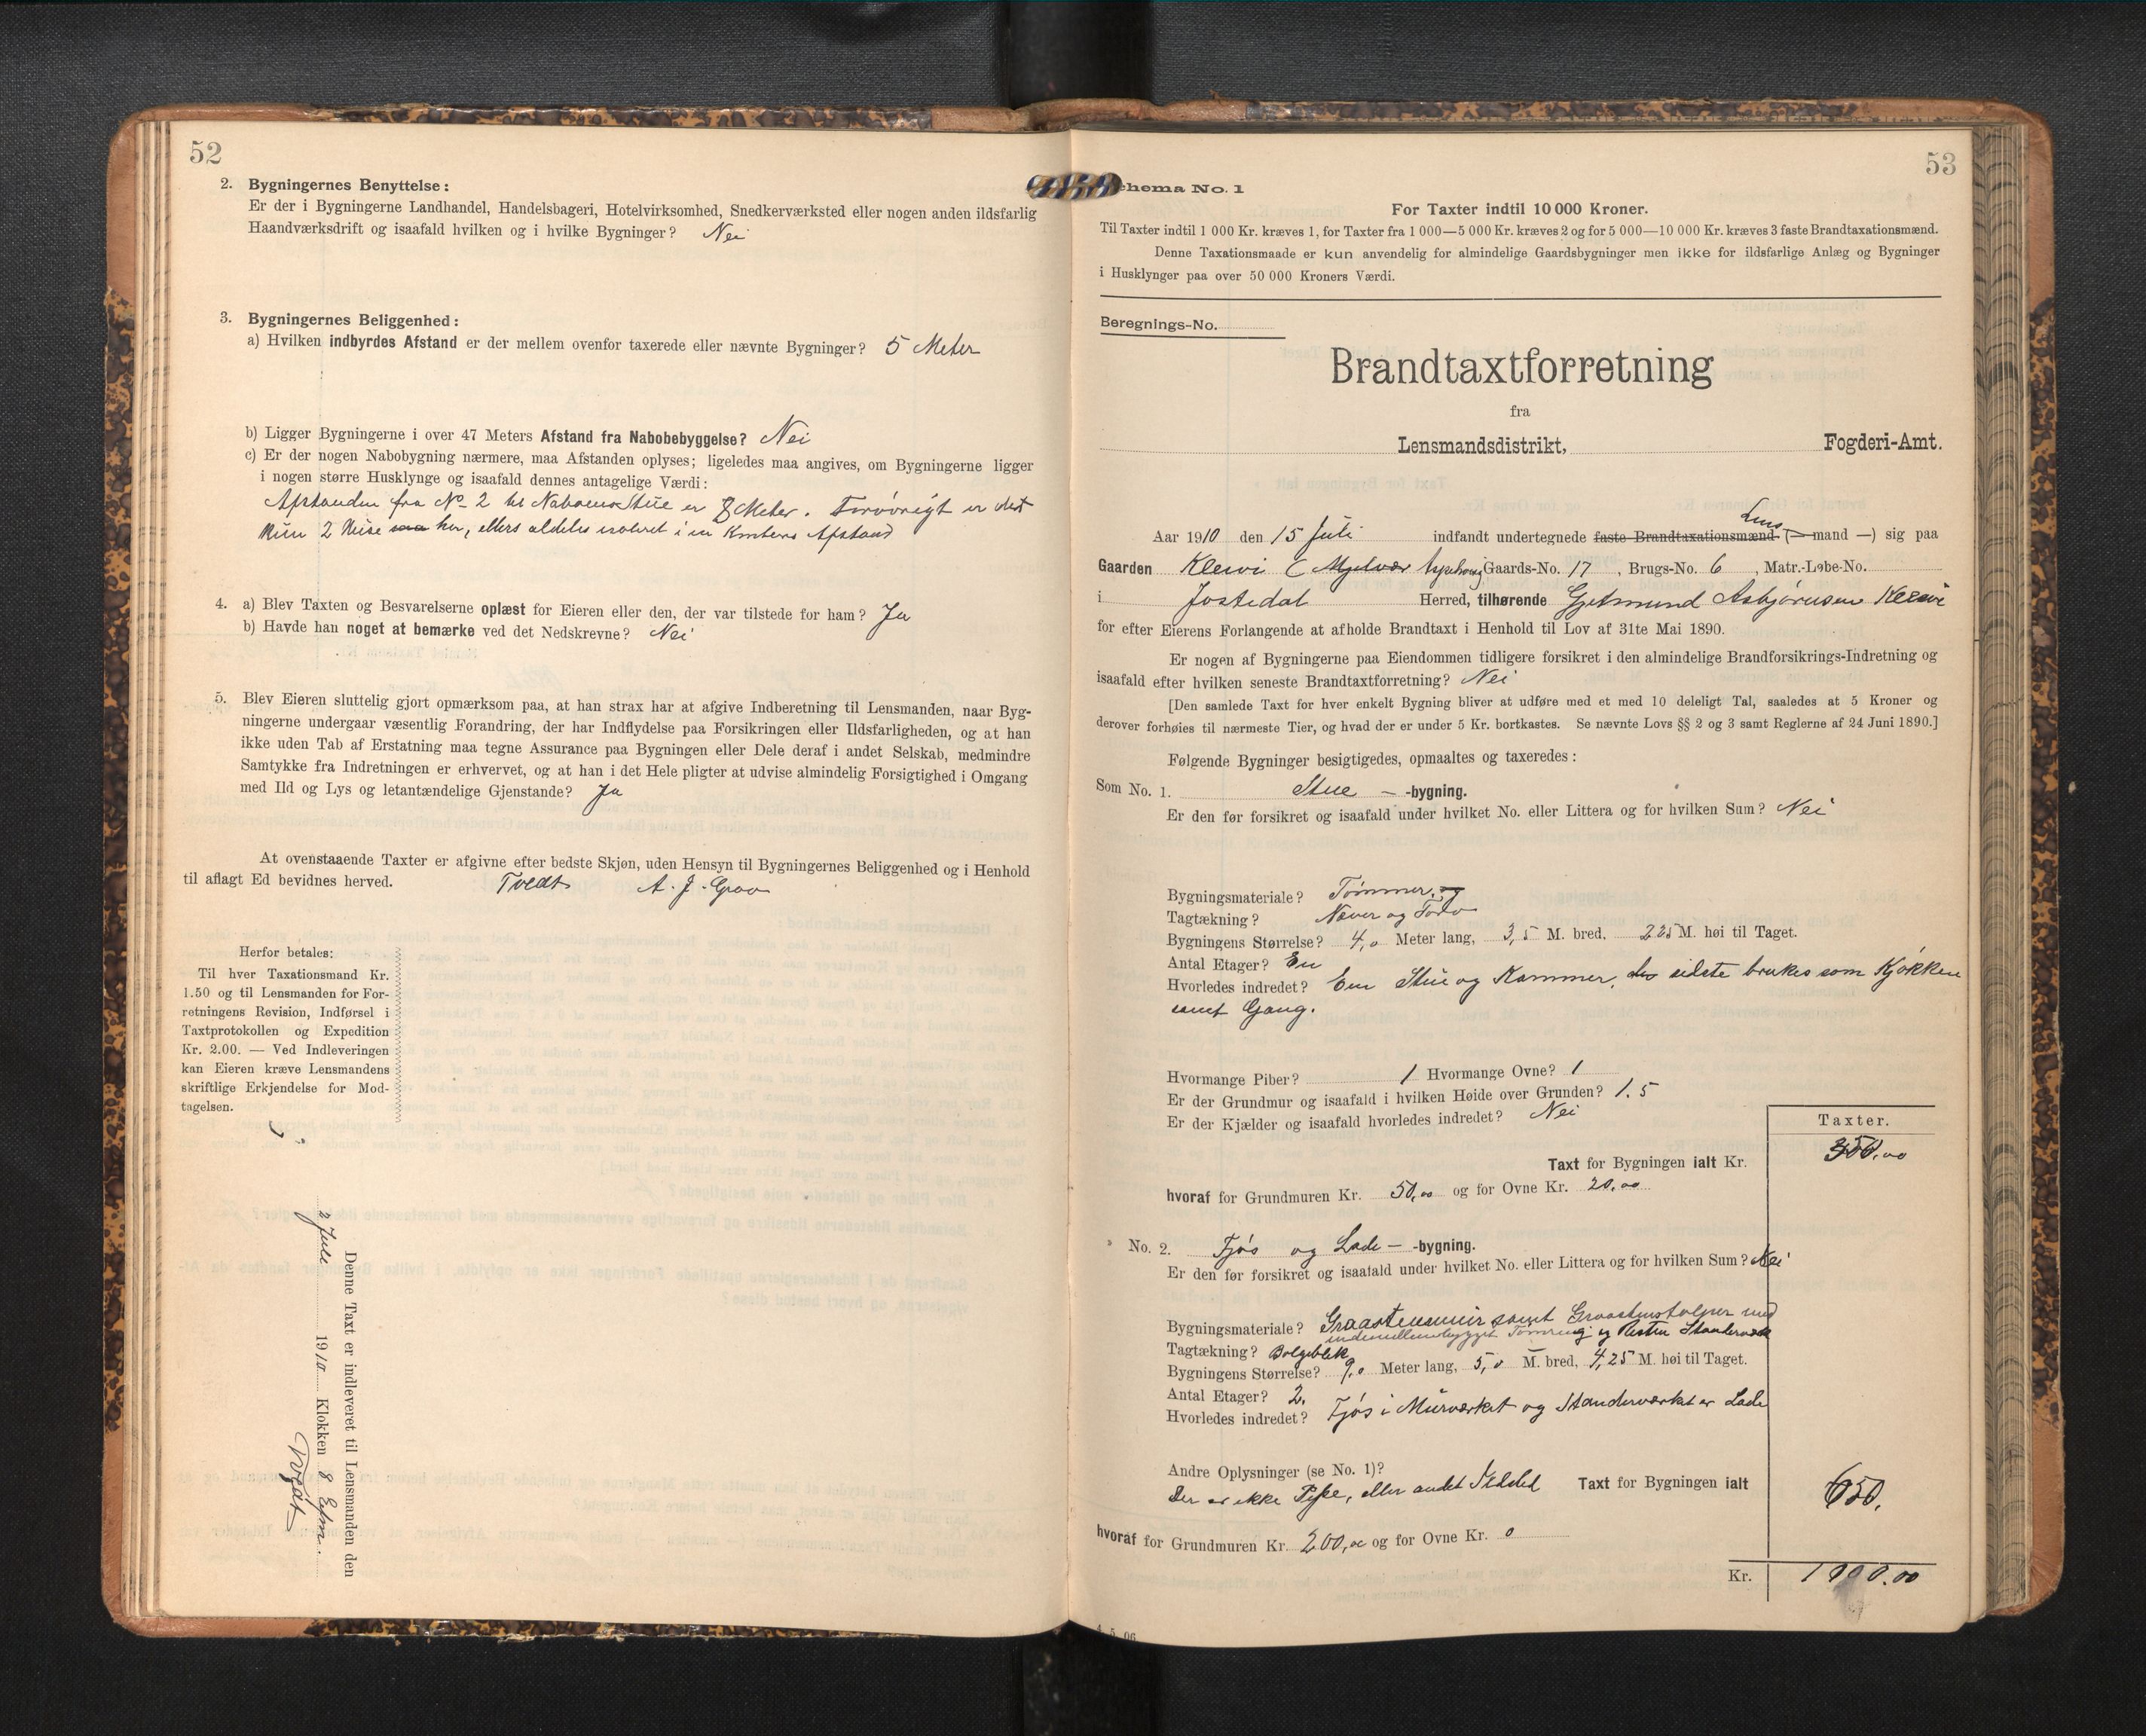 52
2. Bygningernes Benyttelse:
Er der i Bygningerne Landhandel, Handelsbageri, Hotelvirksomhed, Snedkerværksted eller nogen anden ildsfarlig
Haandværksdrift og isaafald hvilken og i hvilke Bygninger? Nei
3. Bygningernes Beliggenhed:
a) Hvilken indbyrdes Afstand er der mellem ovenfor taxerede eller nævnte Bygninger? 5 Meter
b) Ligger Bygningerne i over 47 Meters Afstand fra Nabobebyggelse? Nei
c) Er der nogen Nabobygning nærmere, maa Afstanden oplyses; ligeledes maa angives, om Bygningerne ligger
i nogen større Husklynge og isaafald dennes antagelige Værdi:
Afstanden fra No 2 til Naboens Stue er 8 Meter. Forøvrigt er det
kun 2 Huse her, ellers aldeles isoleret i en Afstand
4. a) Blev Taxten og Besvarelserne oplæst for Eieren eller den, der var tilstede for ham? Ja
b) Havde han noget at bemærke ved det Nedskrevne? Nei
5. Blev Eieren sluttelig gjort opmærksom paa, at han strax har at afgive Indberetning til Lensmanden, naar Byg-
ningerne undergaar væsentlig Forandring, der har Indflydelse paa Forsikringen eller Ildsfarligheden, og at han
ikke uden Tab af Erstatning maa tegne Assurance paa Bygningen eller Dele deraf i andet Selskab, medmindre
Samtykke fra Indretningen er erhvervet, og at han i det Hele pligter at udvise almindelig Forsigtighed i Omgang
med Ild og Lys og letantændelige Gjenstande? Ja
At ovenstaaende Taxter er afgivne efter bedste Skjøn, uden Hensyn til Bygningernes Beliggenhed og i Henhold
til aflagt Ed bevidnes herved. Tvedt A. J. Grov
Herfor betales:
Til hver Taxationsmand Kr.
1.50 og til Lensmanden for For-
retningens Revision, Indførsel i
Taxtprotokollen og Expedition
Kr. 2.00. — Ved Indleveringen
kan Eieren kræve Lensmandens
skriftlige Erkjendelse for Mod-
tagelsen.
Denne Taxt er indleveret til Lensmanden den
2 Juli 1910 Klokken 8 Efm.
Tvedt
53
chema No. 1
For Taxter indtil 10 000 Kroner.
Til Taxter indtil 1 000 Kr. kræves 1, for Taxter fra 1 000—5 000 Kr. kræves 2 og for 5 000—10 000 Kr. kræves 3 faste Brandtaxationsmænd.
Denne Taxationsmaade er kun anvendelig for almindelige Gaardsbygninger men ikke for ildsfarlige Anlæg og Bygninger
i Husklynger paa over 50 000 Kroners Værdi.
Beregnings-No.
Brandtaxtforretning
fra
Lensmandsdistrikt, Fogderi-Amt.
Aar 1910 den 15 Juli indfandt undertegnede faste Brandtaxationsmænd (— Lens mand —) sig paa
Gaarden Kleivi Gaards-No. 17, Brugs-No. 6, Matr.-Løbe-No.
i Jostedal Herred, tilhørende Gjetmund Asbjørnsen Kleivi
for efter Eierens Forlangende at afholde Brandtaxt i Henhold til Lov af 31te Mai 1890.
Er nogen af Bygningerne paa Eiendommen tidligere forsikret i den almindelige Brandforsikrings-Indretning og
isaafald efter hvilken seneste Brandtaxtforretning? Nei
[Den samlede Taxt for hver enkelt Bygning bliver at udføre med et med 10 deleligt Tal, saaledes at 5 Kroner og
derover forhøies til nærmeste Tier, og hvad der er under 5 Kr. bortkastes. Se nævnte Lovs §§ 2 og 3 samt Reglerne af 24 Juni 1890.]
Følgende Bygninger besigtigedes, opmaaltes og taxeredes:
Som No. 1. Stue — -bygning.
Er den før forsikret og isaafald under hvilket No. eller Littera og for hvilken Sum? Nei
Bygningsmateriale? Tømmer og
Tagtækning? Næver og Torv
Bygningens Størrelse? 4,0 Meter lang, 3,5 M. bred, 2 25 M. høi til Taget.
Antal Etager? En
Hvorledes indredet? Een Stue og Kammer, der sidste brukes som Kjøkken
samt Gang.
Hvormange Piber? 1 Hvormange Ovne? 1
Er der Grundmur og isaafald i hvilken Høide over Grunden? 1.5
Er der Kjælder og isaafald hvorledes indredet? Nei
Taxter.
Taxt for Bygningen ialt Kr. 350.00
hvoraf for Grundmuren Kr. 50,00 og for Ovne Kr. 20,00
No. 2. Fjøs og Lade — -bygning.
Er den før forsikret og isaafald under hvilket No. eller Littera og for hvilken Sum? Nei
Bygningsmateriale? Graastensmur samt Graastensstolper med
indimellembygget Tømring og Resten Standerværk
Tagtækning? Bølgeblik
Bygningens Størrelse? 9,0 Meter lang, 5,0 M. bred, 4,25 M. høi til Taget.
Antal Etager? 2.
Hvorledes indredet? Fjøs i Murværket og Standerværket er Lade
Andre Oplysninger (se No. 1)?
Der er ikke Pipe, eller andet Ildsted Taxt for Bygningen ialt 650.
hvoraf for Grundmuren Kr. 200,00 og for Ovne Kr. 0
Kr. 1000.00
4. 5. 06